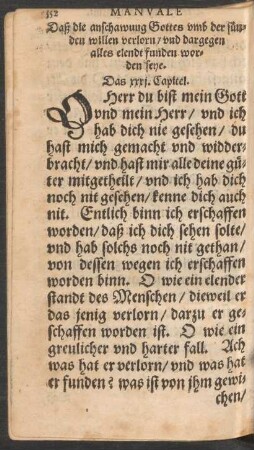 352 MANVALE
Daß die anschawung Gottes vmb der sün-
den willen verlorn/ vnd dargegen
alles elendt funden wor-
den seye.
Das xxxj. Capitel.
O Herr du bist mein Gott
vnd mein Herr/ vnd ich
hab dich nie gesehen/ du
hast mich gemacht vnd widder-
bracht/ vnd hast mir alle deine gü-
ter mitgetheilt/ vnd ich hab dich
noch nit gesehen/ kenne dich auch
nit. Entlich binn ich erschaffen
worden/ daß ich dich sehen solte/
vnd hab solchs noch nit gethan/
von dessen wegen ich erschaffen
worden binn. O wie ein elender
standt des Menschen/ dieweil er
das jenig verlorn/ darzu er ge-
schaffen worden ist. O wie ein
greulicher vnd harter fall. Ach
was hat er verlorn/ vnd was hat
er funden? was ist von jhm gewi-
chen/